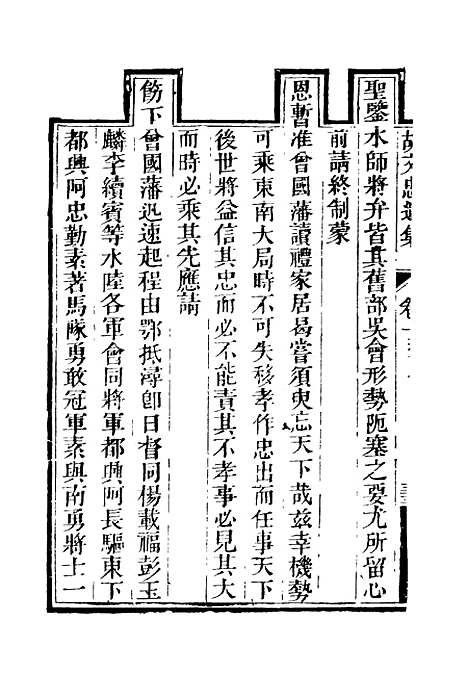 聖鑒水師將弁皆其舊部吳會形勢阨塞之要尤所留心
前請終制蒙
恩暫准曾國藩讀禮家居曷嘗須臾忘天下哉茲幸機勢
可乘東南大局時不可失移孝作忠出而任事天下
後世將益信其忠而必不能責其不孝事必見其大
而時必乘其先應請
飭下曾國藩迅速起程由鄂抵潯卽日督同楊載福彭玉
麟李續賓等水陸各軍會同將軍都興阿長驅東下
都興阿忠勤素著馬隊勇敢冠軍素與南勇將士一